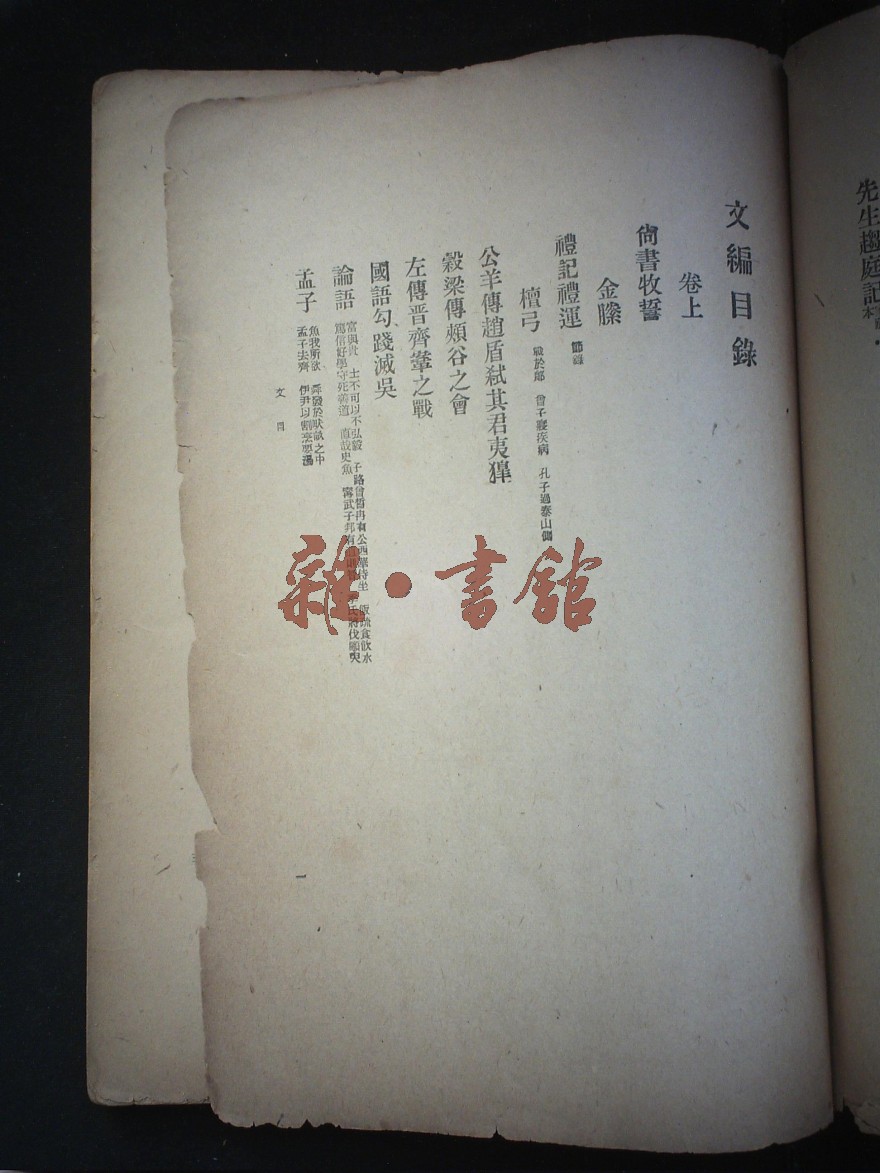 文編目錄
卷上
尙書牧誓
金縢
禮記禮運 節錄
檀弓 戰於郎 曾子寢疾病 孔子過泰山側
公羊傳趙盾弑其君夷獆
穀梁傳頰谷之會
左傳晉齊鞌之戰
國語勾踐滅吳
論語 富與貴 士不可以不弘毅 子路曾晳冉有公西華侍坐 飯疏食飲水
篤信好學守死善道 直哉史魚 甯武子邦有 氏將伐顓臾
孟子 魚我所欲 舜發於畎畝之中
孟子去齊 伊尹以割烹要湯
文 目
一
先生趨庭記
本
雜·書館